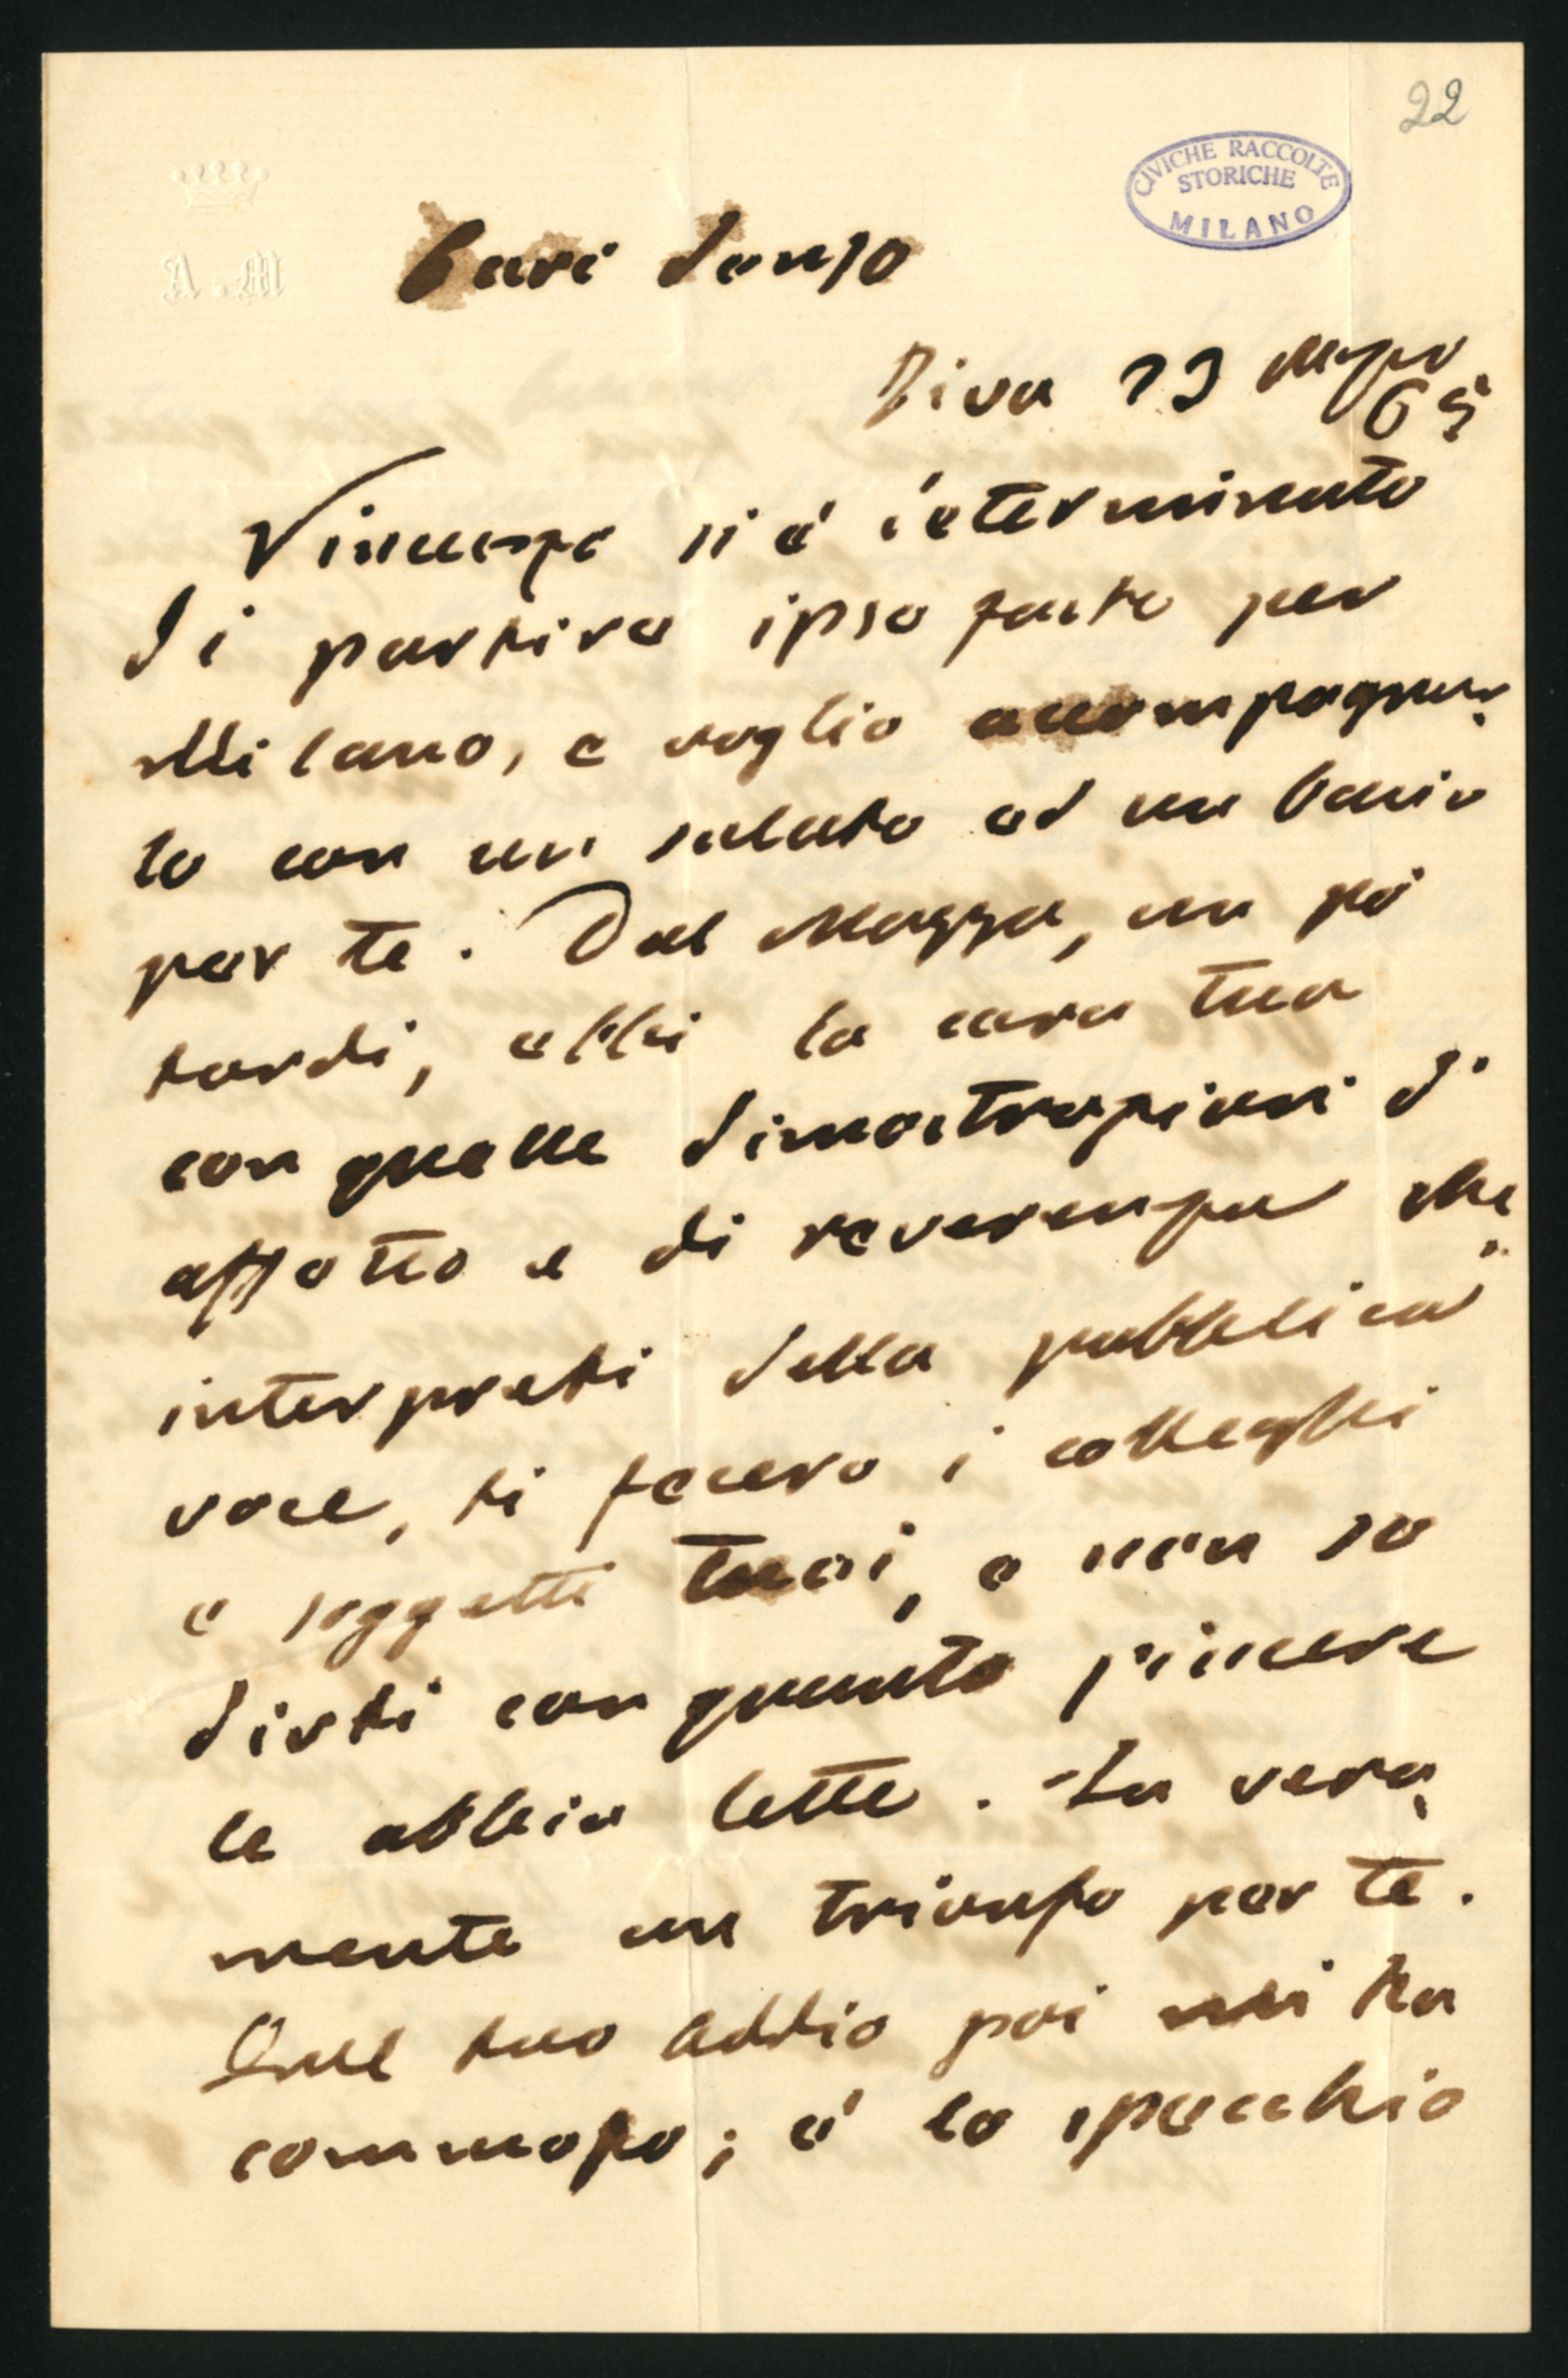 22
CIVICHE RACCOLTE
STORICHE
MILANO
A. M
Riva 23 Marzo
65
Vincenzo si è determinato
di partire ipso facto per
Milano, e voglio accompagnar
lo con un saluto ed un bacio
per te. Dal Mazza, un po'
tardi, ebbi la cara tua
con quelle dimostrazioni di
affetto e di reverenza che
interpreti della pubblica
voce, ti fecero i colleghi
e soggetti tuoi, e non so
dirti con quanto piacere
le abbia lette. Fu vera
mente un trionfo per te.
Quel tuo addio poi mi ha
commosso; è lo specchio